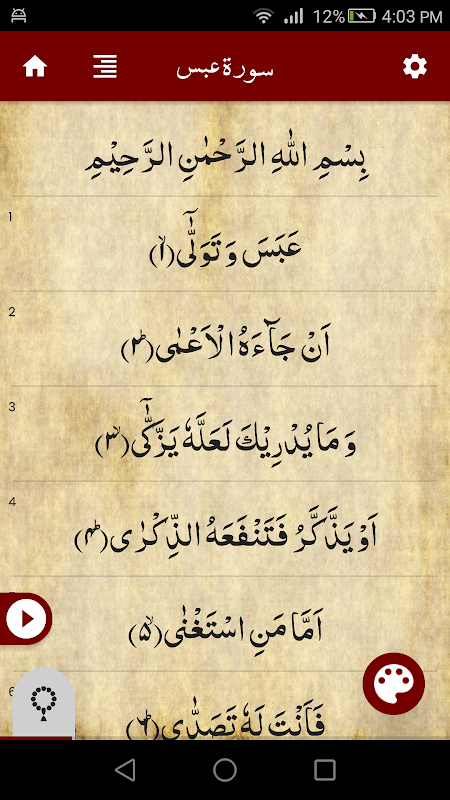 12% 4:03 PM
سورة عبس
بِسْمِ اللّٰهِ الرَّحْمٰنِ الرَّحِيْمِ
1
عَبَسَ وَ تَوَلّٰۤى(۱ۙ)
2
اَنْ جَآءَهُ الْاَعْمٰى(۲ؕ)
3
وَ مَا یُدْرِیْكَ لَعَلَّهٗ یَزَّكّٰۤى(۳ۙ)
4
اَوْ یَذَّكَّرُ فَتَنْفَعَهُ الذِّكْرٰى(۴ؕ)
اَمَّا مَنِ اسْتَغْنٰى(۵ۙ)
6
فَاَنْتَ لَهٗ تَصَدّٰى(۶ؕ)